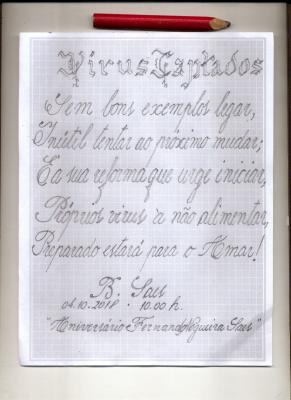 Vírus Captados
Sem bons exemplos legar,
Inútil tentar ao próximo mudar;
E a sua reforma que urge iniciar,
Próprios vírus a não alimentar,
Preparado estará para o Amar!
B. Saes
04.10.2018 10.00 h.
"Aniversário Fernando Nogueira Saes"